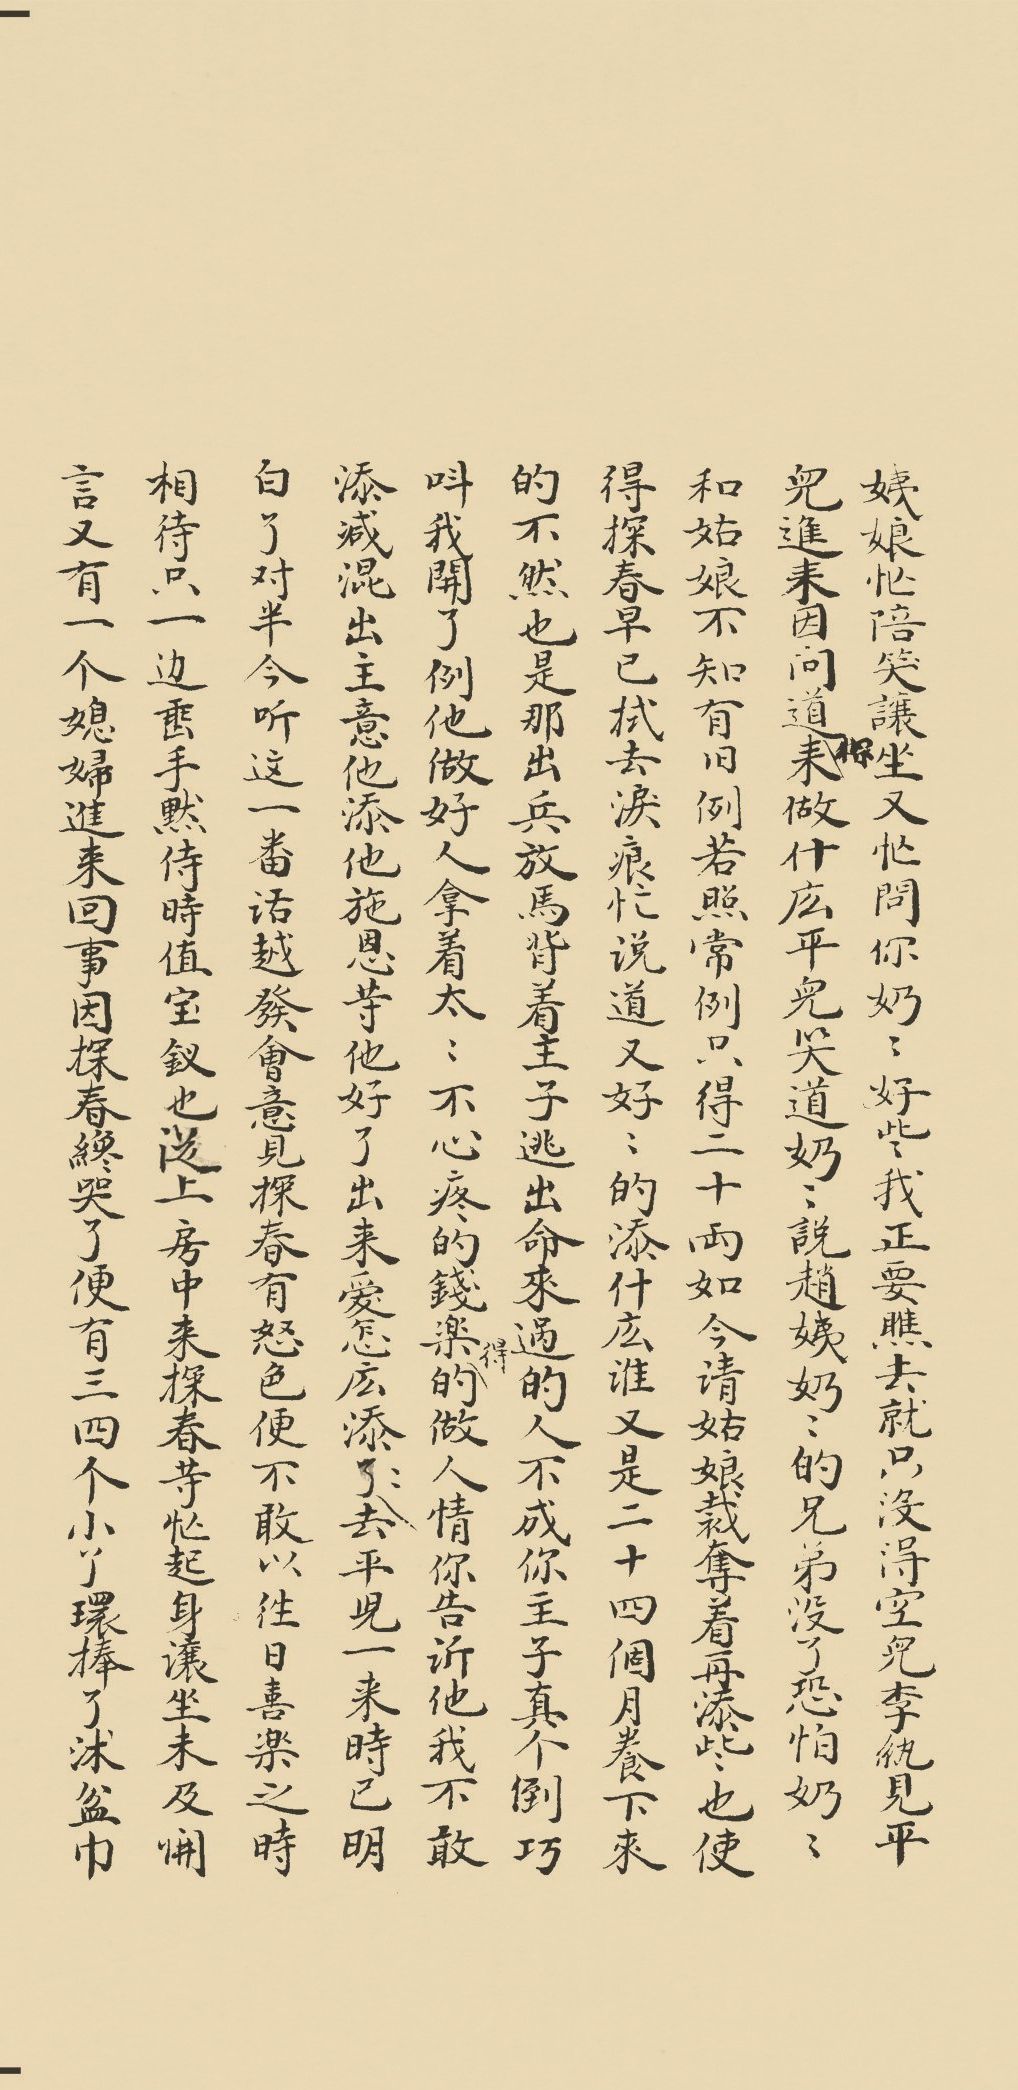 姨娘忙陪笑讓坐又忙問你奶〻好些我正要瞧去就只没得空兒李紈見平
兒進来因问道来做什庅平兒笑道奶〻說趙姨奶〻的兄弟没了恐怕奶〻
和姑娘不知有旧例若照常例只得二十両如今请姑娘裁奪着再添些也使
得探春早已拭去淚痕忙说道又好〻的添什庅谁又是二十四個月養下來
的不然也是那出兵放馬背着主子逃出命來過的人不成你主子真个倒巧
叫我開了例他做好人拿着太〻不心疼的錢楽的得做人情你告訴他我不敢
添减混出主意他添他施恩䓁他好了出来愛怎庅添了〻去平児一来時已明
白了对半今听这一番话越發會意見探春有怒色便不敢以徃日喜楽之時
相待只一边垂手默侍時值宝釵也従上房中来探春䓁忙起身讓坐未及開
言又有一个媳婦進来回事因探春纔哭了便有三四个小丫環捧了沐盆巾